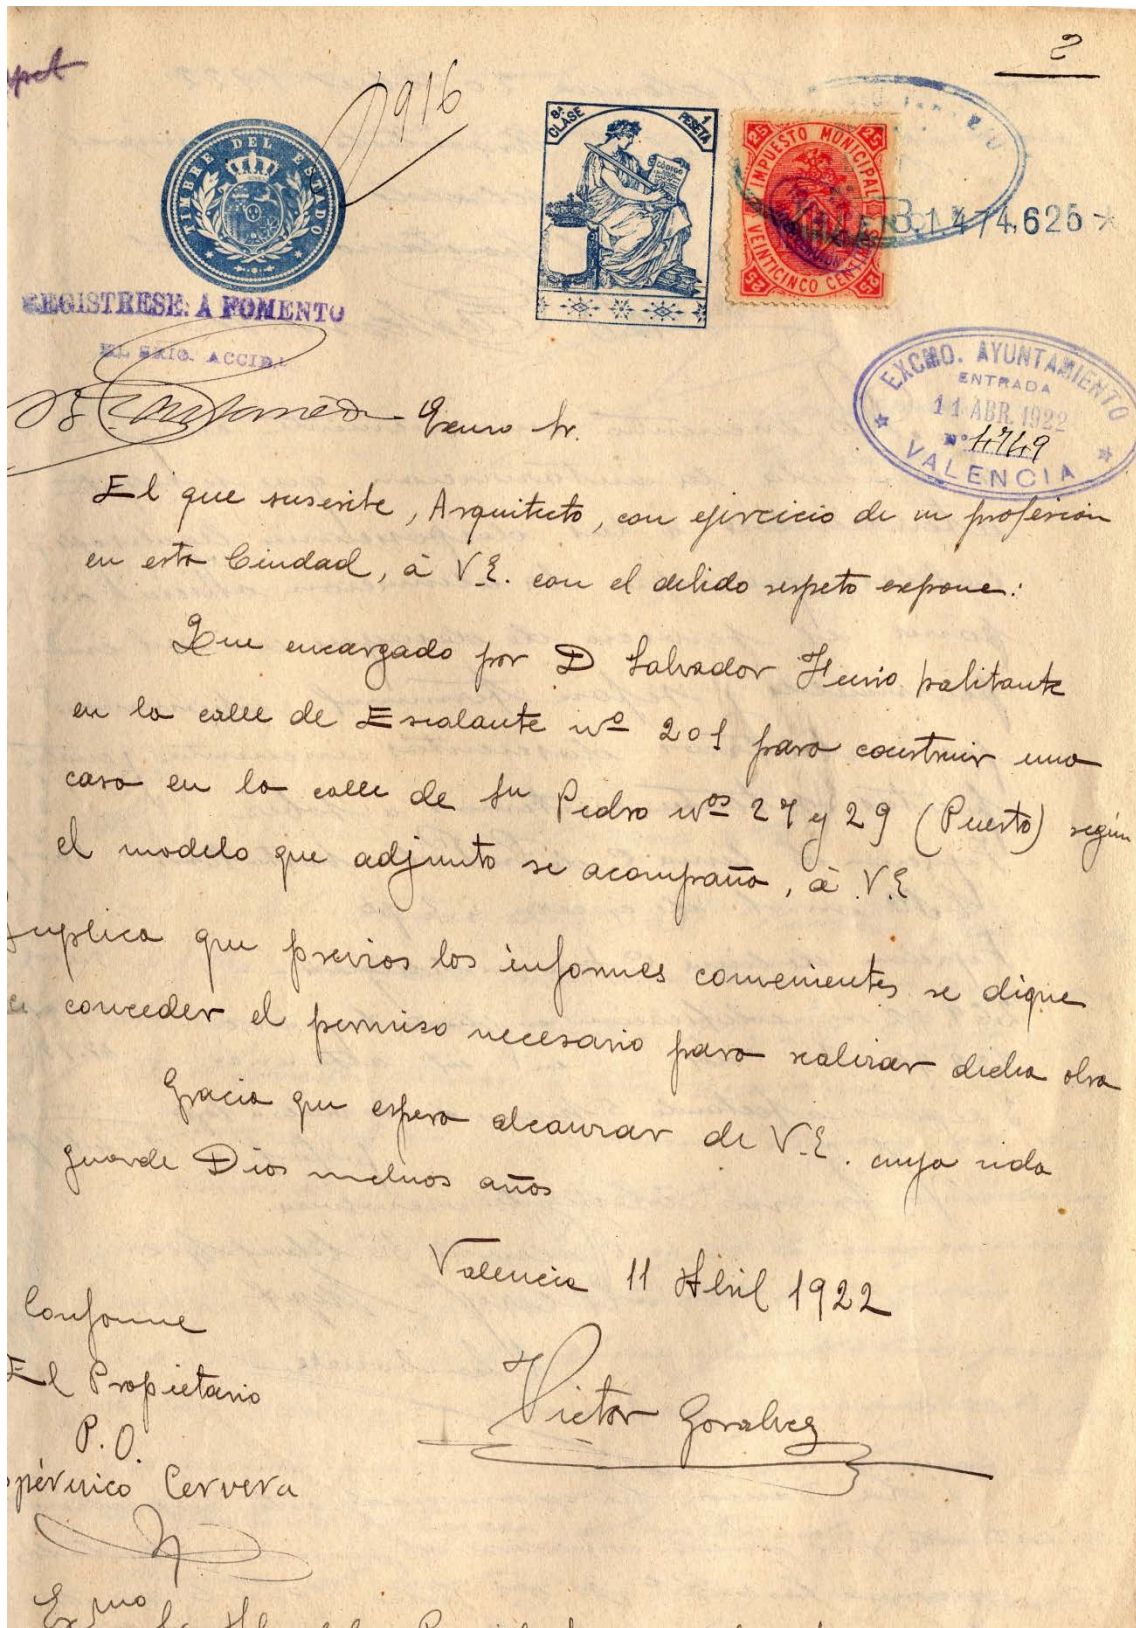 2
916
TIMBRE DEL ESTADO
8ª CLASE 1 PESETA
CÓDIGO
25 25
IMPUESTO MUNICIPAL
VEINTICINCO CENTIMOS
25 25
B.1474,625*
REGISTRESE: A FOMENTO
EL SRIO. ACCID.
EXCMO. AYUNTAMIENTO
ENTRADA
11 ABR. 1922
Nº 4749
VALENCIA
Excmo Sr.
El que suscribe, Arquitecto, con ejercicio de su profesión
en esta Ciudad, á V.E. con el debido respeto expone:
Que encargado por D Salvador habitante
en la calle de Escalante nº 201 para construir una
casa en la calle de Sn Pedro nos 27 y 29 (Puerto) según
el modelo que adjunto se acompaña, á V.E
Suplica que previos los informes convenientes se digne
conceder el permiso necesario para realizar dicha obra
Gracia que espera alcanzar de V.E. cuya vida
guarde Dios muchos años
Valencia 11 Abril 1922
Conforme
El Propietario
P.O.
Victor Gosalvez
opérnico Cervera
Exmo